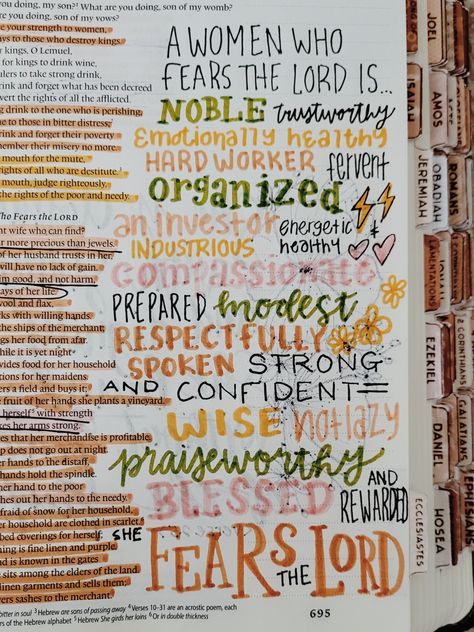 you doing, my son? What are you doing, son of my womb?
are you doing, son of my vows?
your strength to women,
ays to those who destroy kings.
or kings, O Lemuel,
for kings to drink wine,
rulers to take strong drink,
drink and forget what has been decreed
vert the rights of all the afflicted.
g drink to the one who is perishing,
ne to those in bitter distress;
rink and forget their poverty
member their misery no more.
mouth for the mute,
rights of all who are destitute.
mouth, judge righteously,
the rights of the poor and needy.
Who Fears the LORD
nt wife who can find?
ar more precious than jewels.
of her husband trusts in her,
will have no lack of gain.
im good, and not harm,
ays of her life.
wool and flax,
rks with willing hands
the ships of the merchant;
ngs her food from afar.
while it is yet night
vides food for her household
tions for her maidens.
ers a field and buys it;
e fruit of her hands she plants a vineyard.
herself with strength
kes her arms strong.
es that her merchandise is profitable.
p does not go out at night.
her hands to the distaff,
hands hold the spindle.
her hand to the poor
hes out her hands to the needy.
afraid of snow for her household,
her household are clothed in scarlet.
bed coverings for herself;
hing is fine linen and purple.
and is known in the gates
sits among the elders of the land.
linen garments and sells them;
vers sashes to the merchant.
bitter in soul 3 Hebrew are sons of passing away 4 Verses 10–31 are an acrostic poem, each
ers of the Hebrew alphabet 5 Hebrew She girds her loins 6 Or in double thickness
695
A WOMEN WHO
FEARS THE LORD IS...
NOBLE trustworthy
Emotionally healthy
HARD WORKER fervent
organized
an investor energetic &
INDUSTRIOUS healthy
compassionate
PREPARED modest
RESPECTFULLY
SPOKEN STRONG
AND CONFIDENT
WISE not lazy
praiseworthy
BLESSED AND
REWARDED
SHE
FEARS THE LORD
JOEL
AMOS
OBADIAH
JEREMIAH
LAMENTATIONS
EZEKIEL
DANIEL
ECCLESIASTES
HOSEA